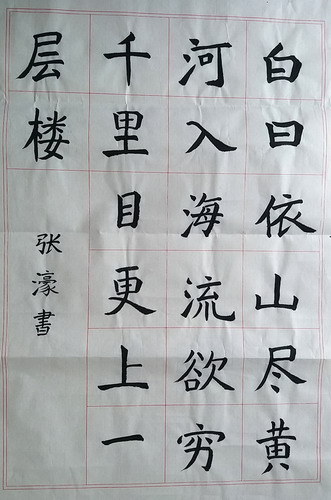 白日依山尽黄
河入海流欲穷
千里目更上一
层楼
张濠書